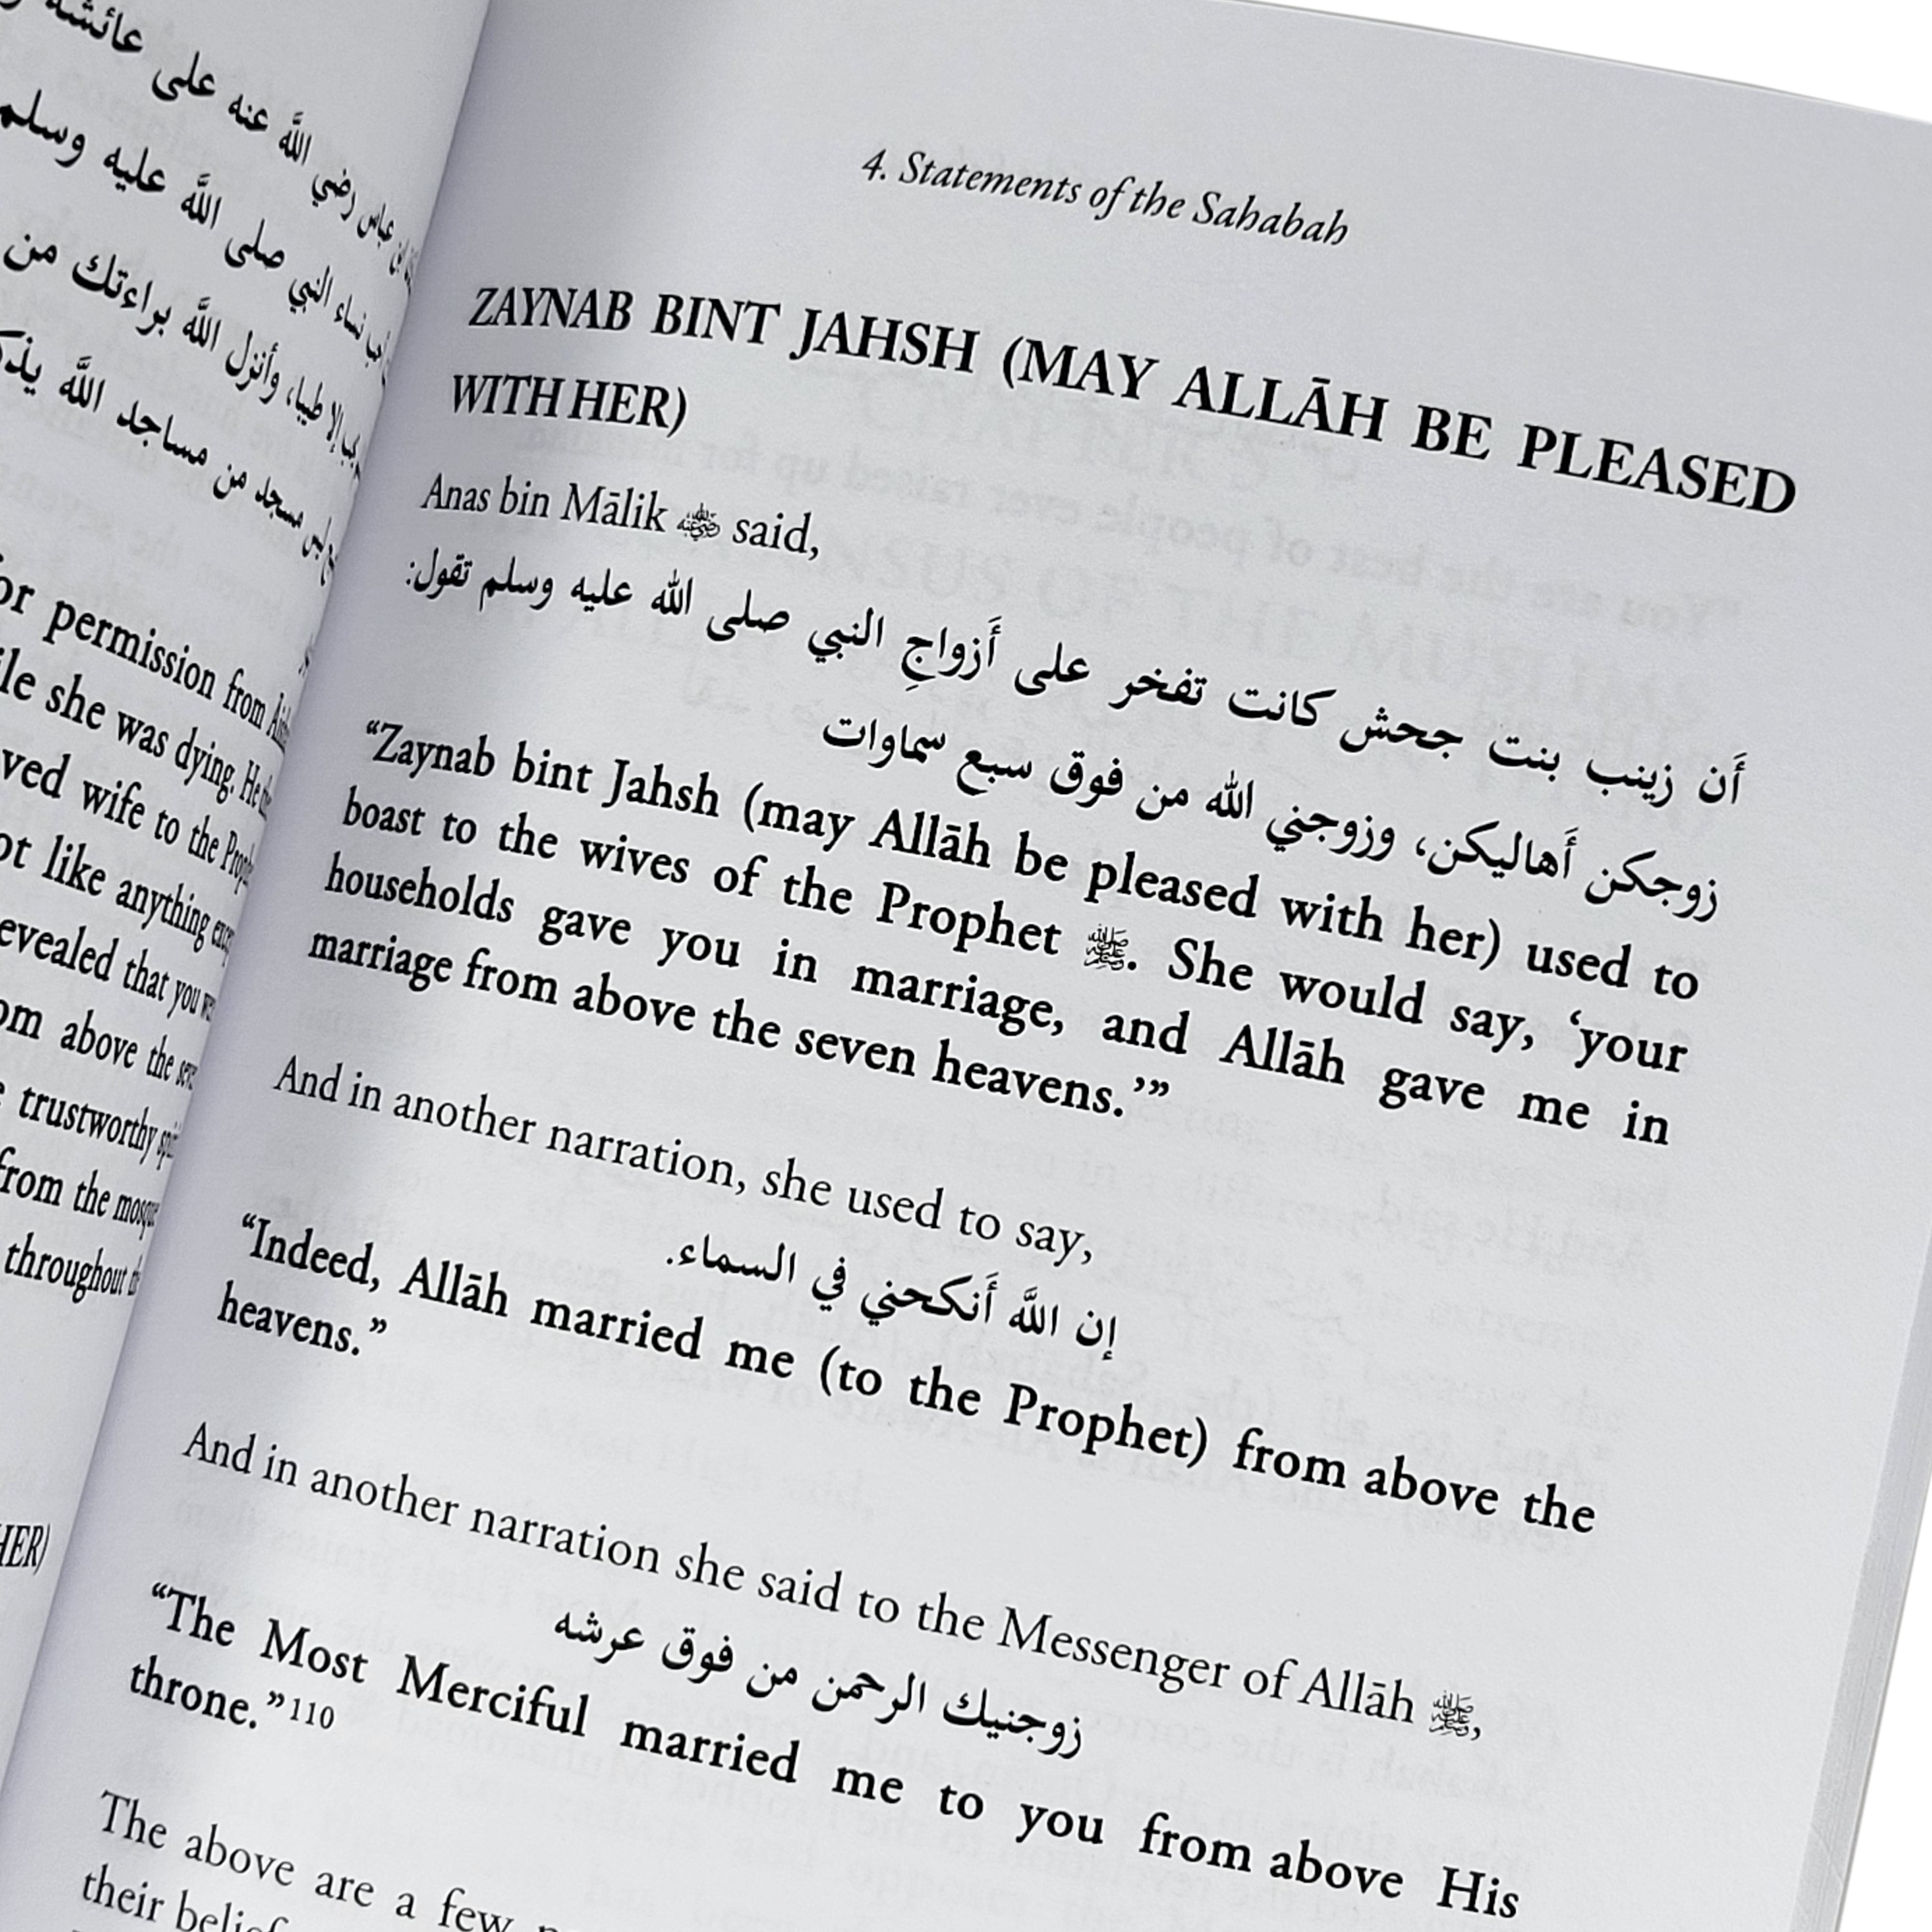 عنه على عائشة
رضي الله
ابن عباس
صلى الله عليه وسلم
نساء النبي
إلا طيبا، وأنزل الله براءتك من
مسجد من مساجد الله
or permission from
ile she was dying. He
ved wife to the
ot like anything
evealed that you
om above the
trustworthy
from the
throughout
HER)
4. Statements of the Sahabah
ZAYNAB BINT JAHSH (MAY ALLĀH BE PLEASED
WITH HER)
Anas bin Mālik رضي الله عنه said,
أَن زينب بنت جحش كانت تفخر على أَزواجِ النبي صلى الله عليه وسلم تقول:
زوجكن أَهاليكن، وزوجني الله من فوق سبع سماوات
“Zaynab bint Jahsh (may Allāh be pleased with her) used to
boast to the wives of the Prophet ﷺ. She would say, ‘your
households gave you in marriage, and Allāh gave me in
marriage from above the seven heavens.’”
And in another narration, she used to say,
إن اللَّه أَنكحني في السماء.
“Indeed, Allāh married me (to the Prophet) from above the
heavens.”
And in another narration she said to the Messenger of Allāh ﷺ,
زوجنيك الرحمن من فوق عرشه
“The Most Merciful married me to you from above His
throne.”110
The above are a few
their